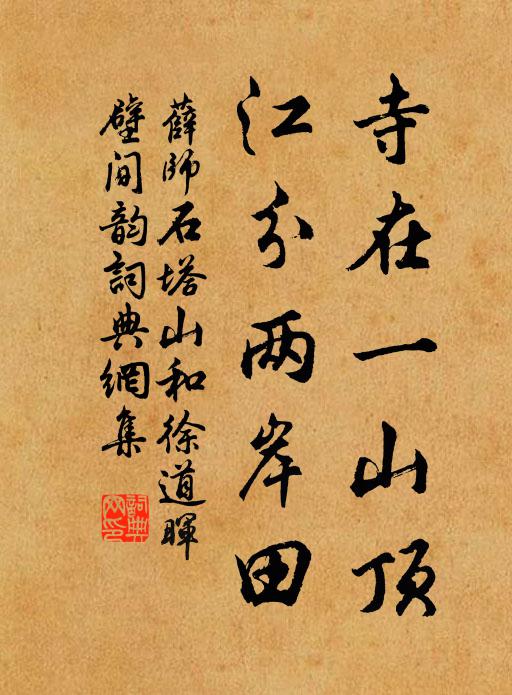 寺在一山顶
江分两岸田
薛师石塔山和徐道晖
壁间韵詞典網集
詞典網印